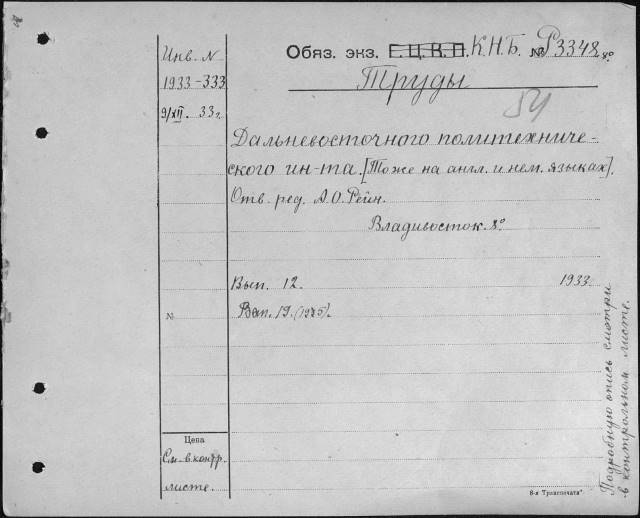 Обяз. экз. Г.Ц.В.П. К.Н.Б. № Р3348 8º
Труды
54
Инв. N
1933-333
9/XII. 33г.
Дальневосточного политехниче-
ского ин-та. [Тоже на англ. и нем. языках].
Отв. ред. А.О. Рейн.
Владивосток. 8º
Вып. 12. 1933.
№ Вып. 19. (1935).
Цена
См. в контр.
листе.
Подробную опись смотри
в контрольном листе.
8-я Транспечать